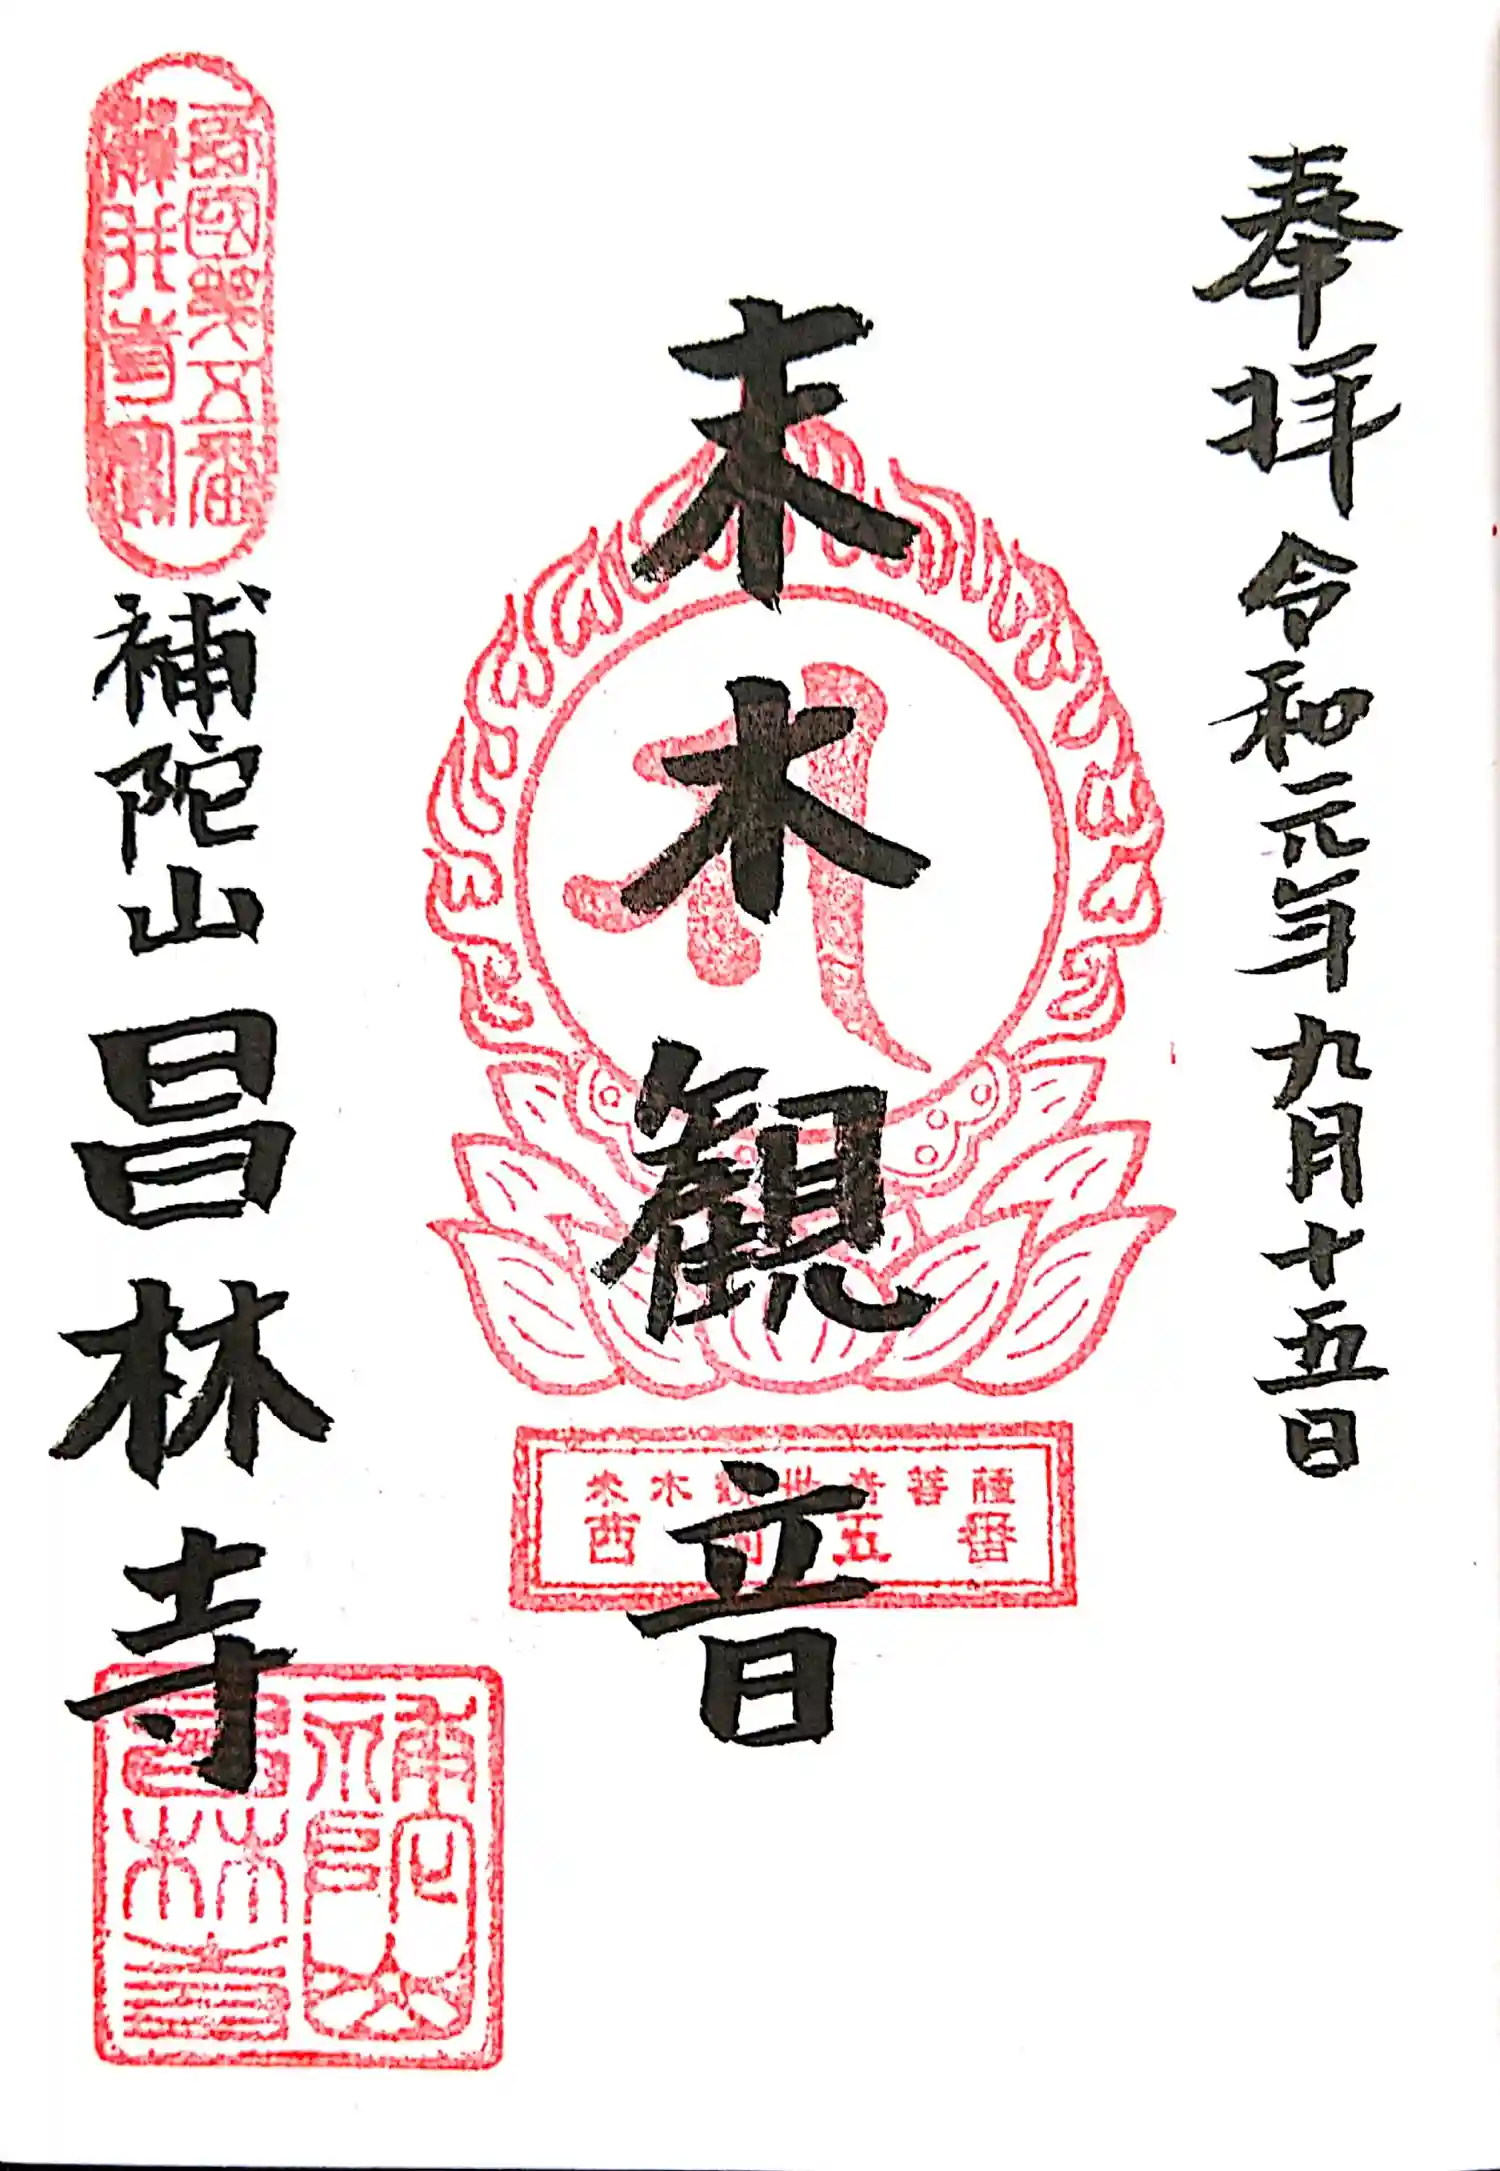 奉拝 令和元年九月十五日
末木観音
末木観世音菩薩
西 五番
補陀山 昌林寺
補陀山
昌林寺